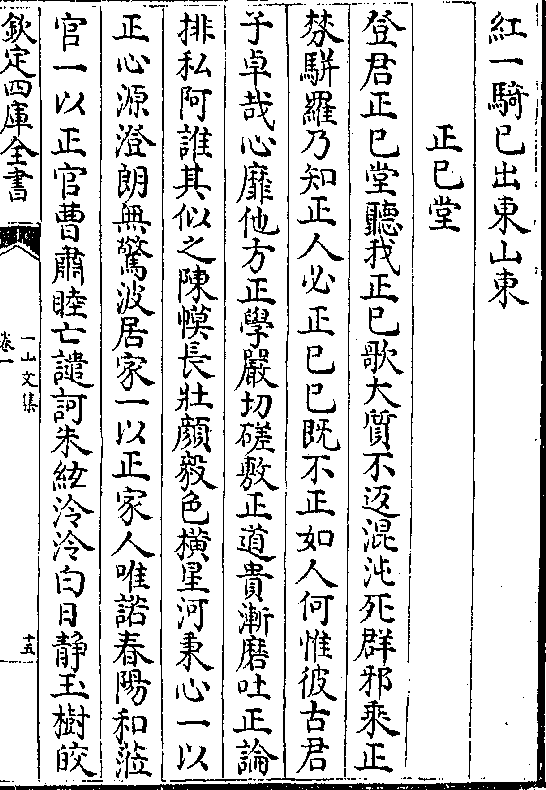 紅一騎已出東山東
正已堂
登君正已堂聽我正已歌大質不返混沌死群邪乘正
棼駢羅乃知正人必正已已既不正如人何惟彼古君
子卓哉心靡他方正學嚴切磋敷正道貴漸磨吐正論
排私阿誰其似之陳㦬長壯顏毅色橫星河秉心一以
正心源澄朗無驚波居家一以正家人唯諾春陽和蒞
官一以正官曹肅睦亡譴訶朱絃泠泠白日靜玉樹皎
欽定四庫全書
一山文集
卷一
十五